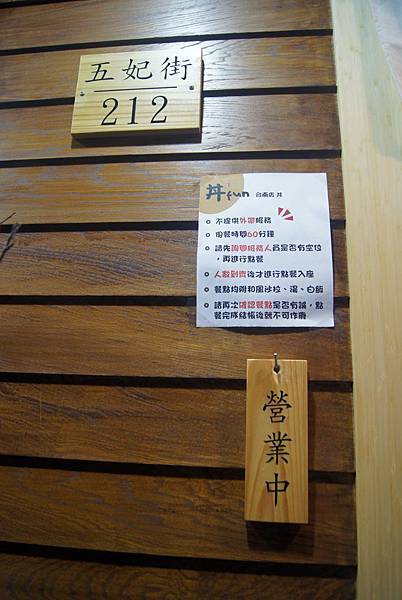 五妃街
212
丼fun 台南店 丼
不提供外帶服務
用餐時間60分鐘
請先詢問服務人員是否有空位
，再進行點餐
人數到齊後才進行點餐入座
餐點均附和風沙拉、湯、白飯
請再次確認餐點是否有誤，點
餐完成結帳後就不可作廢
營業中